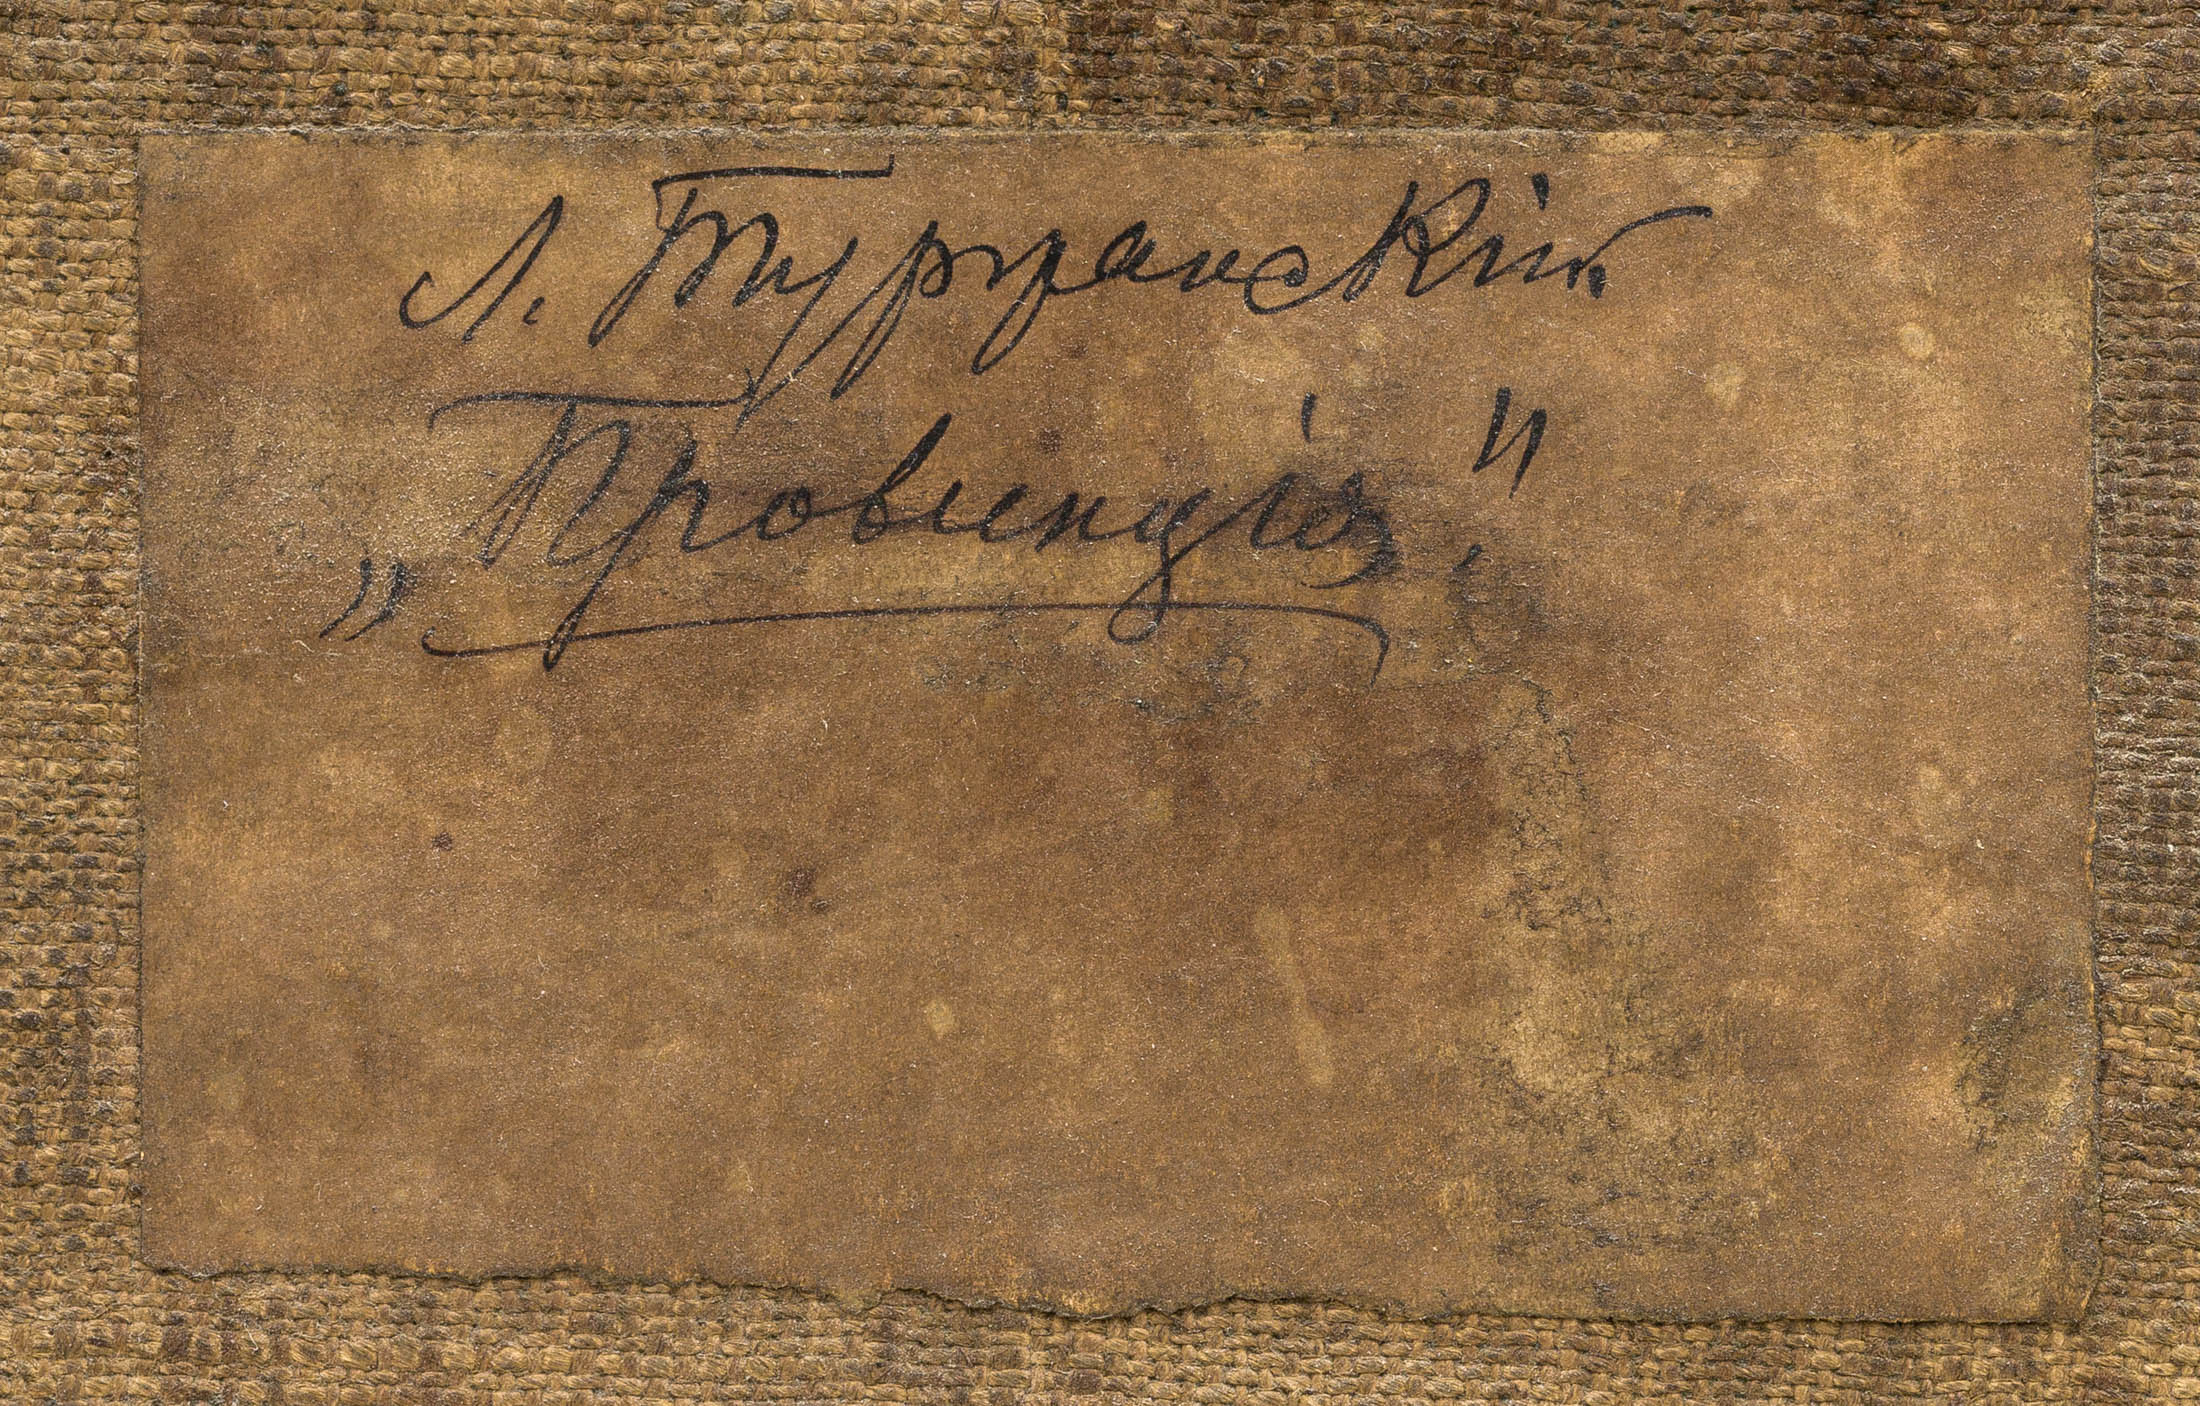 Л. Туржанскій
„Провинція."